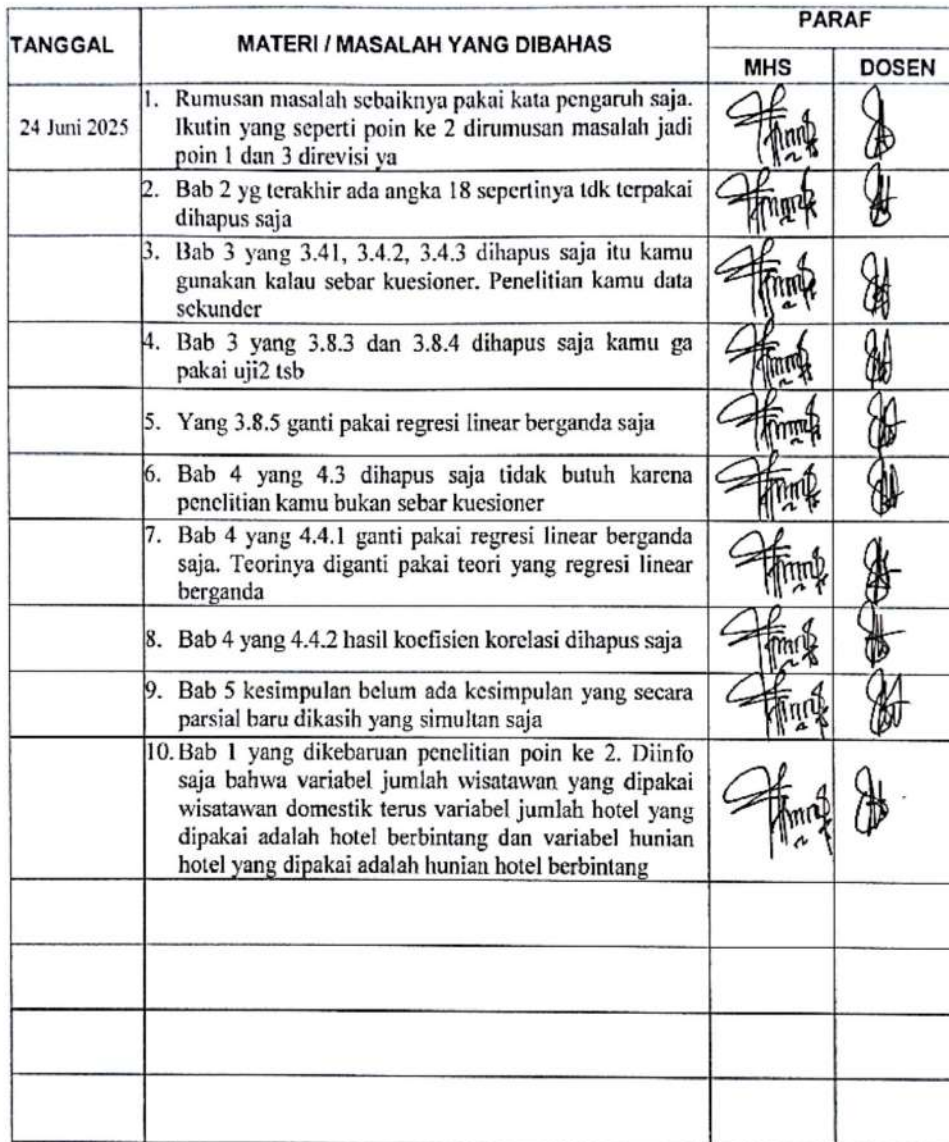 TANGGAL
MATERI / MASALAH YANG DIBAHAS
PARAF
MHS
DOSEN
24 Juni 2025
1. Rumusan masalah sebaiknya pakai kata pengaruh saja.
Ikutin yang seperti poin ke 2 dirumusan masalah jadi
poin 1 dan 3 direvisi ya
2. Bab 2 yg terakhir ada angka 18 sepertinya tdk terpakai
dihapus saja
3. Bab 3 yang 3.41, 3.4.2, 3.4.3 dihapus saja itu kamu
gunakan kalau sebar kuesioner. Penelitian kamu data
sekunder
4. Bab 3 yang 3.8.3 dan 3.8.4 dihapus saja kamu ga
pakai uji2 tsb
5. Yang 3.8.5 ganti pakai regresi linear berganda saja
6. Bab 4 yang 4.3 dihapus saja tidak butuh karena
penelitian kamu bukan sebar kuesioner
7. Bab 4 yang 4.4.1 ganti pakai regresi linear berganda
saja. Teorinya diganti pakai teori yang regresi linear
berganda
8. Bab 4 yang 4.4.2 hasil koefisien korelasi dihapus saja
9. Bab 5 kesimpulan belum ada kesimpulan yang secara
parsial baru dikasih yang simultan saja
10. Bab 1 yang dikebaruan penelitian poin ke 2. Diinfo
saja bahwa variabel jumlah wisatawan yang dipakai
wisatawan domestik terus variabel jumlah hotel yang
dipakai adalah hotel berbintang dan variabel hunian
hotel yang dipakai adalah hunian hotel berbintang